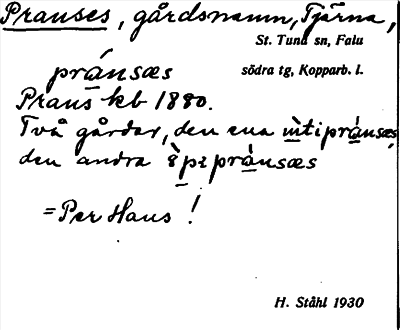 Pranses, gårdsnamn, Tjärna,
St. Tuna sn, Falu
pránsæs södra tg, Kopparb. l.
Prans kb 1880.
Två gårdar, den ena ùtipránsæs,
den andra pránsæs
= Per Hans!
H. Ståhl 1930